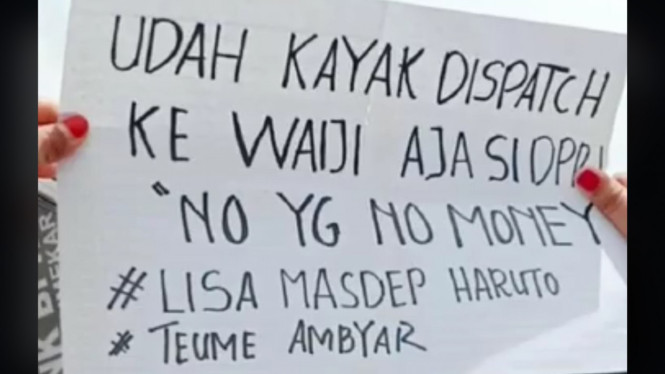 UDAH KAYAK DISPATCH
KE WAIJI AJA SI DPR!
"NO YG NO MONEY
# LISA MASDEP HARUTO
# TEUME AMBYAR